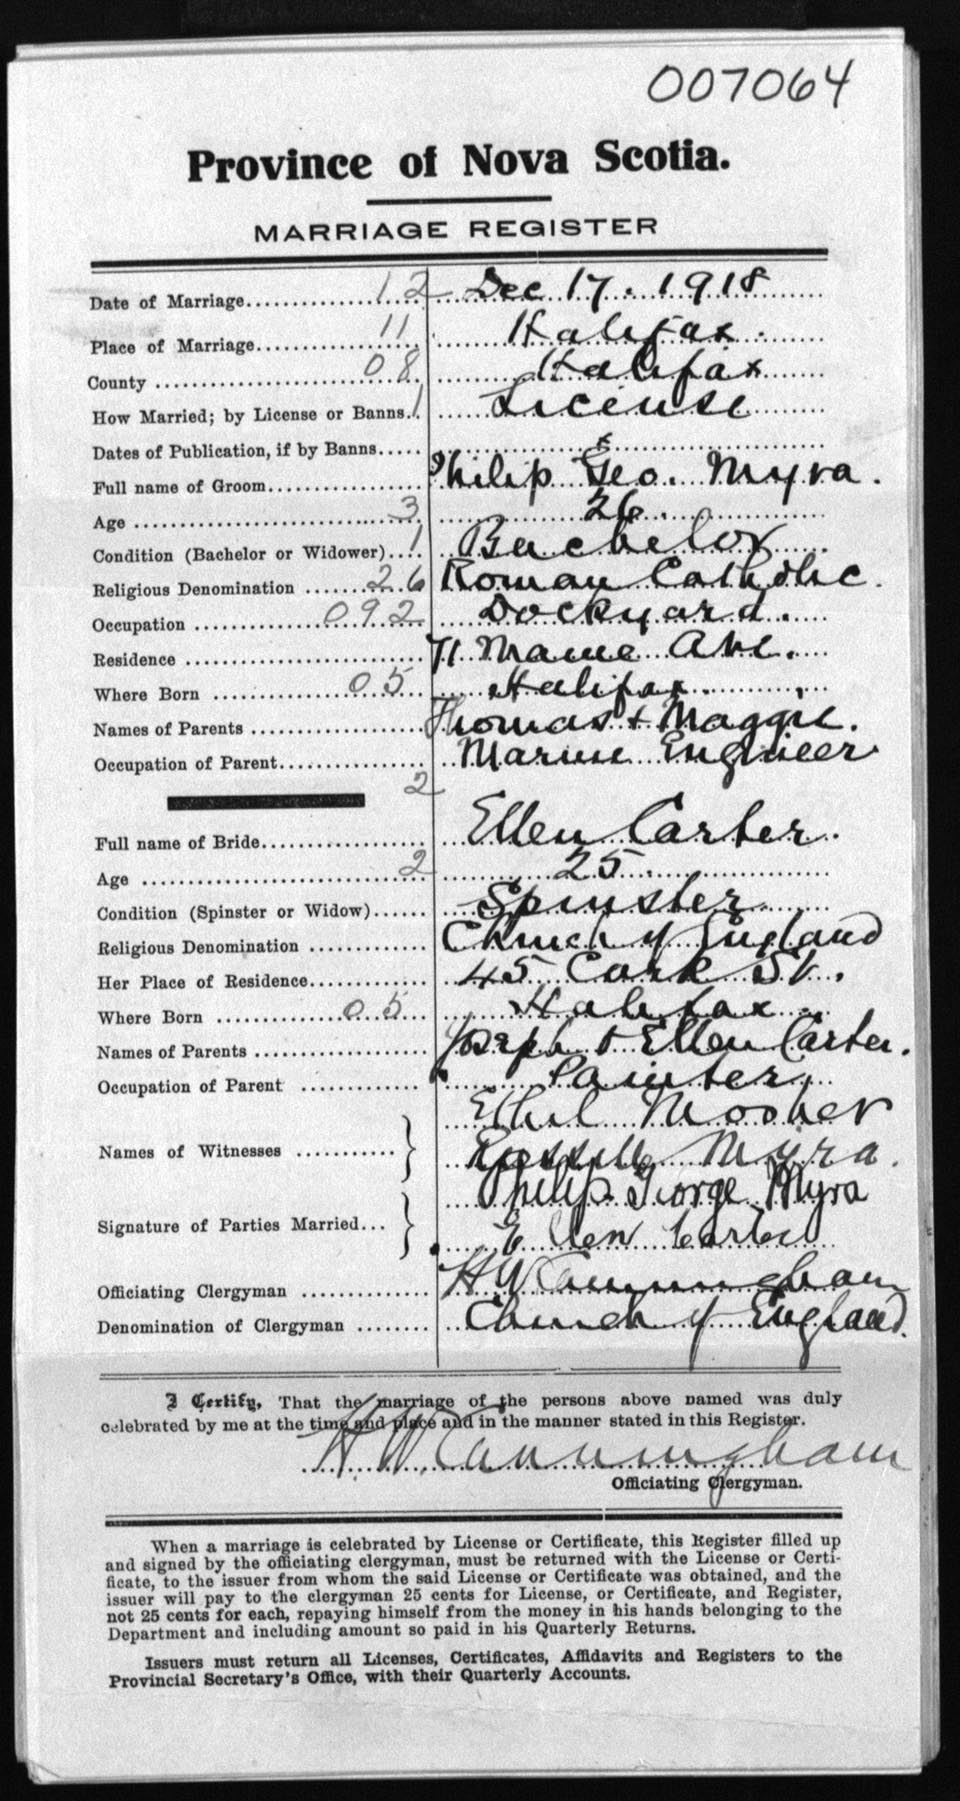 007064
Province of Nova Scotia.
MARRIAGE REGISTER
Date of Marriage.................12 Dec 17. 1918
Place of Marriage................11 Halifax.
County ...........................08 Halifax
How Married; by License or Banns..1 License
Dates of Publication, if by Banns..... x
Full name of Groom................. Philip Geo. Myra.
Age ..............................3 26.
Condition (Bachelor or Widower)....1 Bachelor
Religious Denomination .......26 Roman Catholic.
Occupation ...............092 Dockyard.
Residence ........................... 71 Maine Ave.
Where Born ................05 Halifax.
Names of Parents .................. Thomas + Maggie.
Occupation of Parent............... Marine Engineer
2
Full name of Bride................. Ellen Carter.
Age ..............................2 25.
Condition (Spinster or Widow)...... Spinster
Religious Denomination ............ Church of England
Her Place of Residence............. 45 Cork St.
Where Born ................05 Halifax
Names of Parents .................. Joseph & Ellen Carter.
Occupation of Parent ............ Painter
Ethel Mosher
Names of Witnesses ........... Russell Myra.
Philip George Myra
Signature of Parties Married...
Ellen Carter
Officiating Clergyman ............. H W Cunningham
Denomination of Clergyman ........ Church of England.
I Certify, That the marriage of the persons above named was duly
celebrated by me at the time and place and in the manner stated in this Register.
H W Cunningham
Officiating Clergyman.
When a marriage is celebrated by License or Certificate, this Register filled up
and signed by the officiating clergyman, must be returned with the License or Certi-
ficate, to the issuer from whom the said License or Certificate was obtained, and the
issuer will pay to the clergyman 25 cents for License, or Certificate, and Register,
not 25 cents for each, repaying himself from the money in his hands belonging to the
Department and including amount so paid in his Quarterly Returns.
Issuers must return all Licenses, Certificates, Affidavits and Registers to the
Provincial Secretary's Office, with their Quarterly Accounts.